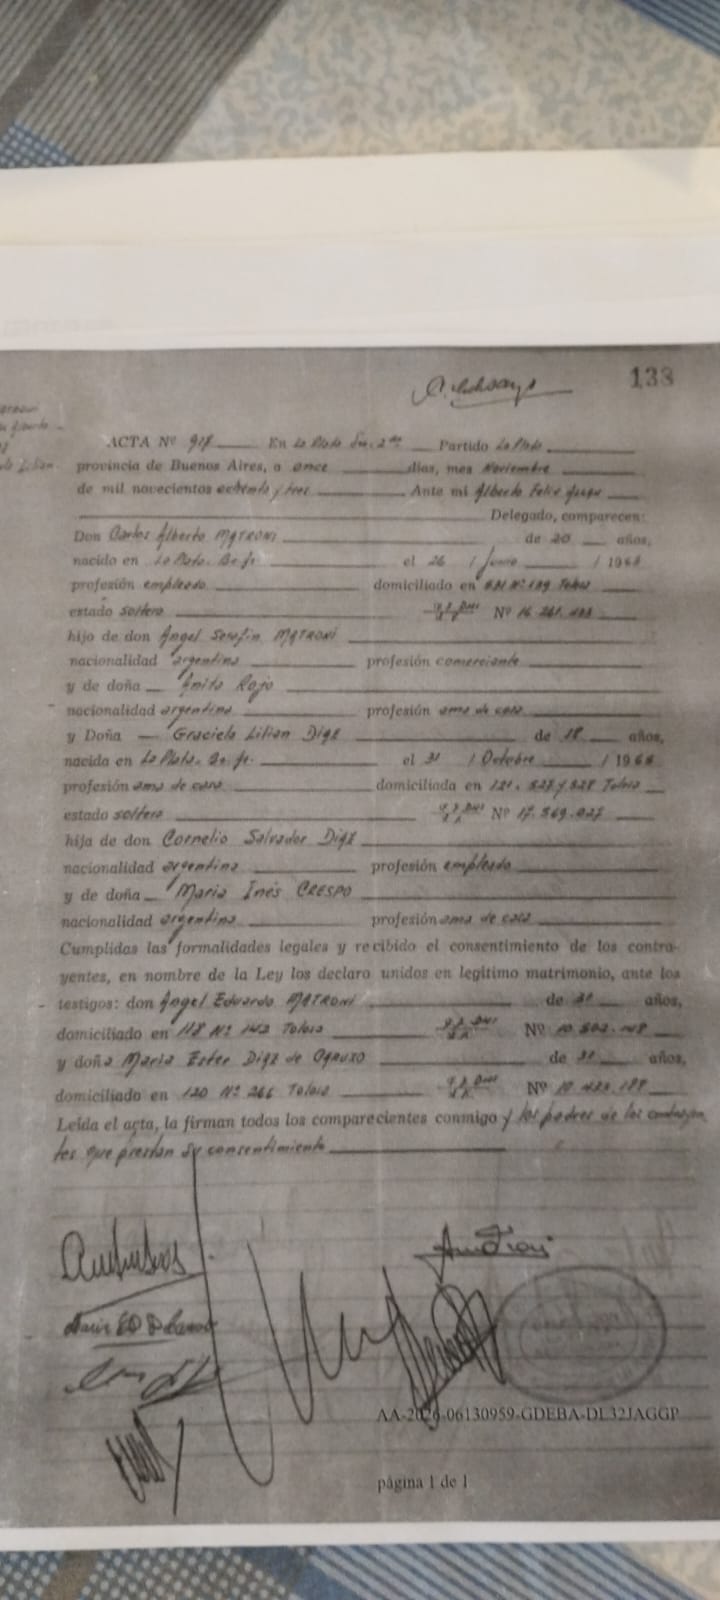 138
ACTA Nº 918 En La Plata Sec. 2da Partido La Plata
provincia de Buenos Aires, a once días, mes Noviembre
de mil novecientos ochenta y tres Ante mi Alberto Felix
Delegado, comparecen:
Don Carlos Alberto MATRONI de 20 años,
nacido en La Plata. Bs. As. el 26 / Junio / 196
profesión empleado domiciliado en Nº Tolosa
estado soltero Nº 16.261.
hijo de don Angel Serafin MATRONI
nacionalidad argentina profesión comerciante
y de doña Anita Rojo
nacionalidad argentina profesión ama de casa
y Doña Graciela Lilian Diaz de 18 años,
nacida en La Plata. Bs. As. el 31 / Octubre / 196
profesión ama de casa domiciliada en 121. 527 y 528 Tolosa
estado soltera Nº 17.569.027
hija de don Cornelio Salvador Diaz
nacionalidad argentina profesión empleado
y de doña Maria Inés CRESPO
nacionalidad argentina profesión ama de casa
Cumplidas las formalidades legales y recibido el consentimiento de los contra-
yentes, en nombre de la Ley los declaro unidos en legítimo matrimonio, ante los
testigos: don Angel Eduardo MATRONI de 31 años,
domiciliado en 118 Nº 142 Tolosa Nº 10.502.148
y doña Maria Ester Diaz de de 31 años,
domiciliado en 120 Nº 266 Tolosa Nº
Leída el acta, la firman todos los comparecientes conmigo y los padres de los contrayen
tes que prestan su consentimiento
AA-2026-06130959-GDEBA-DL32JAGGP
página 1 de 1